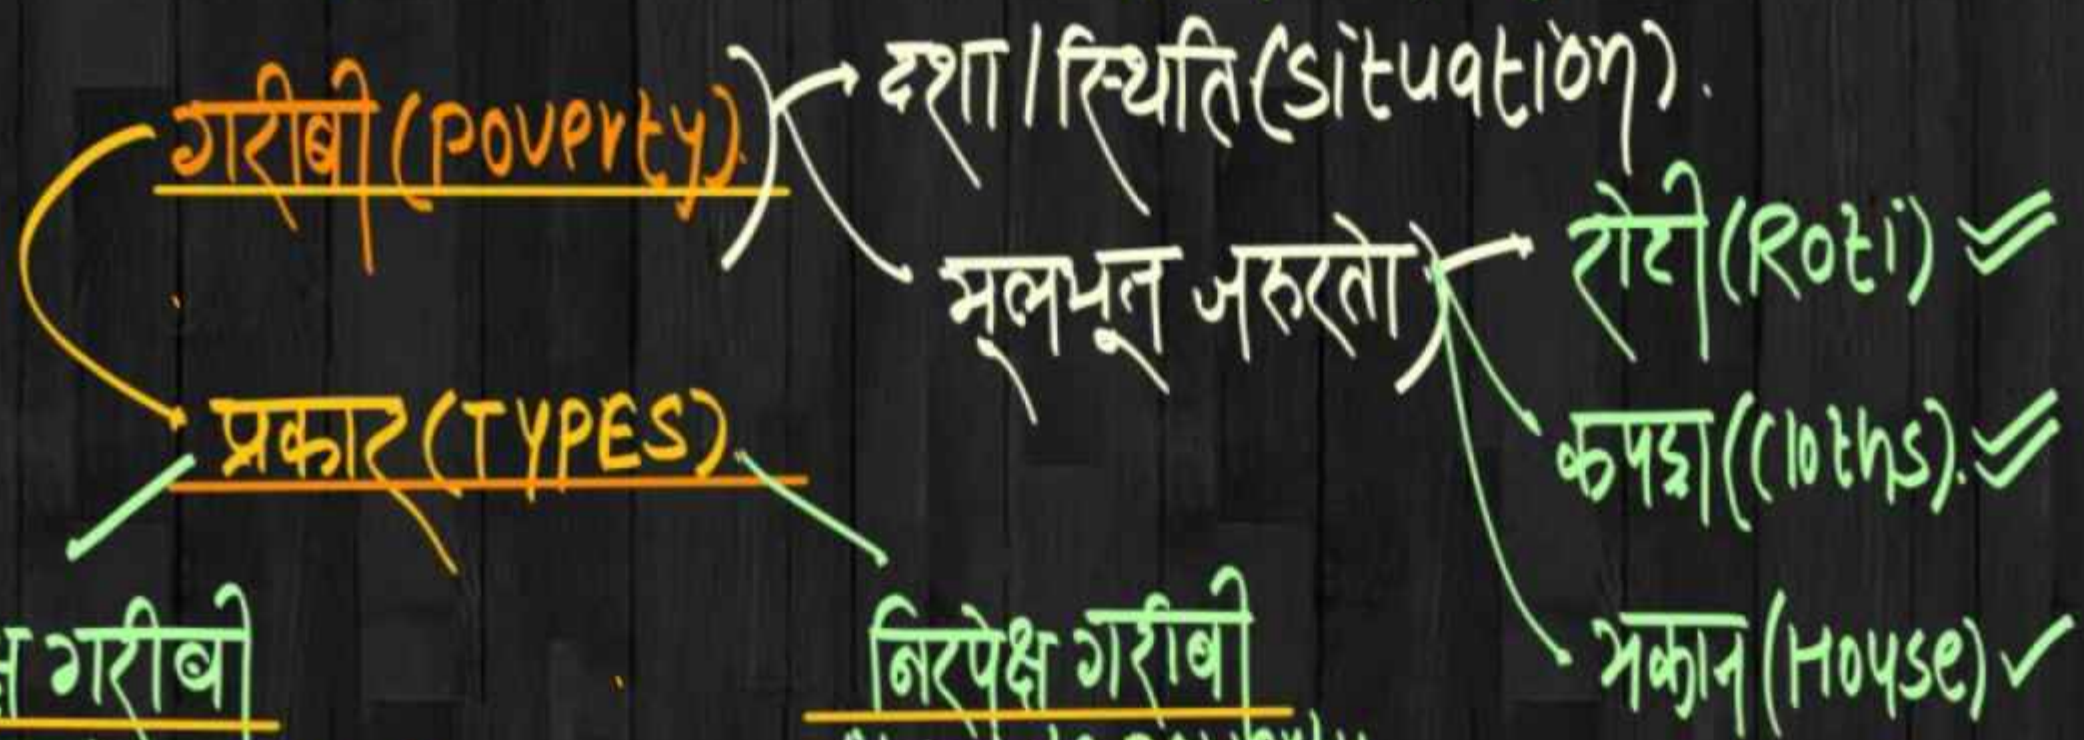 गरीबी (Poverty)
दशा / स्थिति (situation).
मूलभूत जरुरतो
रोटी (Roti)
कपड़ा (cloths).
मकान (House)
प्रकार (TYPES)
गरीबी
निरपेक्ष गरीबी